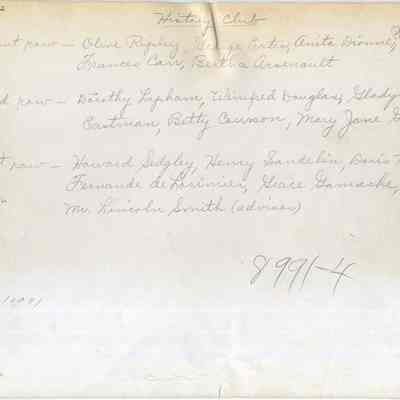 History Club
row — Olive Ripley, George Porter, Anita Dionne,
Frances Carr, Bertha Arsenault
row — Dorothy Lapham, Winifred Douglas, Gladys
Eastman, Betty Cannon, Mary Jane
row — Howard Sedgley, Henry Sandelin, Doris
Fernande de Lorimier, Grace Gamache,
Mr. Lincoln Smith (advisor)
8991-4